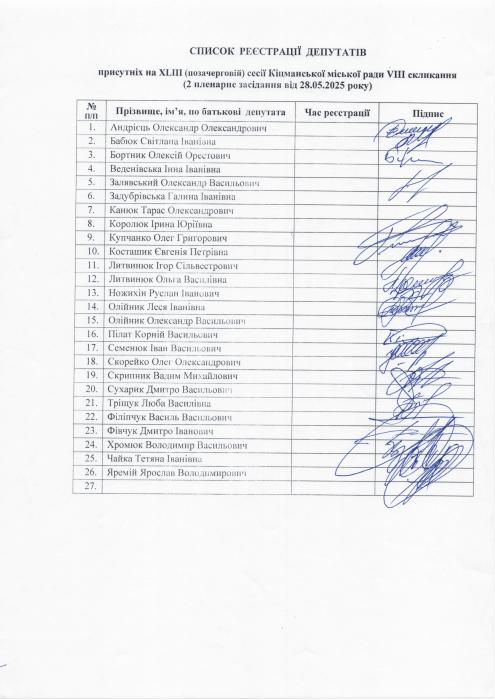 СПИСОК РЕЄСТРАЦІЇ ДЕПУТАТІВ
присутніх на XLIII (позачерговій) сесії Кіцманської міської ради VIII скликання
(2 пленарне засідання від 28.05.2025 року)
№ п/п Прізвище, ім’я, по батькові депутата Час реєстрації Підпис
1. Андрієць Олександр Олександрович
2. Бабюк Світлана Іванівна
3. Бортник Олексій Орестович
4. Веденівська Інна Іванівна
5. Залявський Олександр Васильович
6. Задубрівська Галина Іванівна
7. Канюк Тарас Олександрович
8. Королюк Ірина Юріївна
9. Купчанко Олег Григорович
10. Косташик Євгенія Петрівна
11. Литвинюк Ігор Сільвестрович
12. Литвинюк Ольга Василівна
13. Ножихін Руслан Іванович
14. Олійник Леся Іванівна
15. Олійник Олександр Васильович
16. Пілат Корній Васильович
17. Семенюк Іван Васильович
18. Скорейко Олег Олександрович
19. Скрипник Вадим Михайлович
20. Сухарик Дмитро Васильович
21. Тріщук Люба Василівна
22. Філіпчук Василь Васильович
23. Фівчук Дмитро Іванович
24. Хромюк Володимир Васильович
25. Чайка Тетяна Іванівна
26. Яремій Ярослав Володимирович
27.